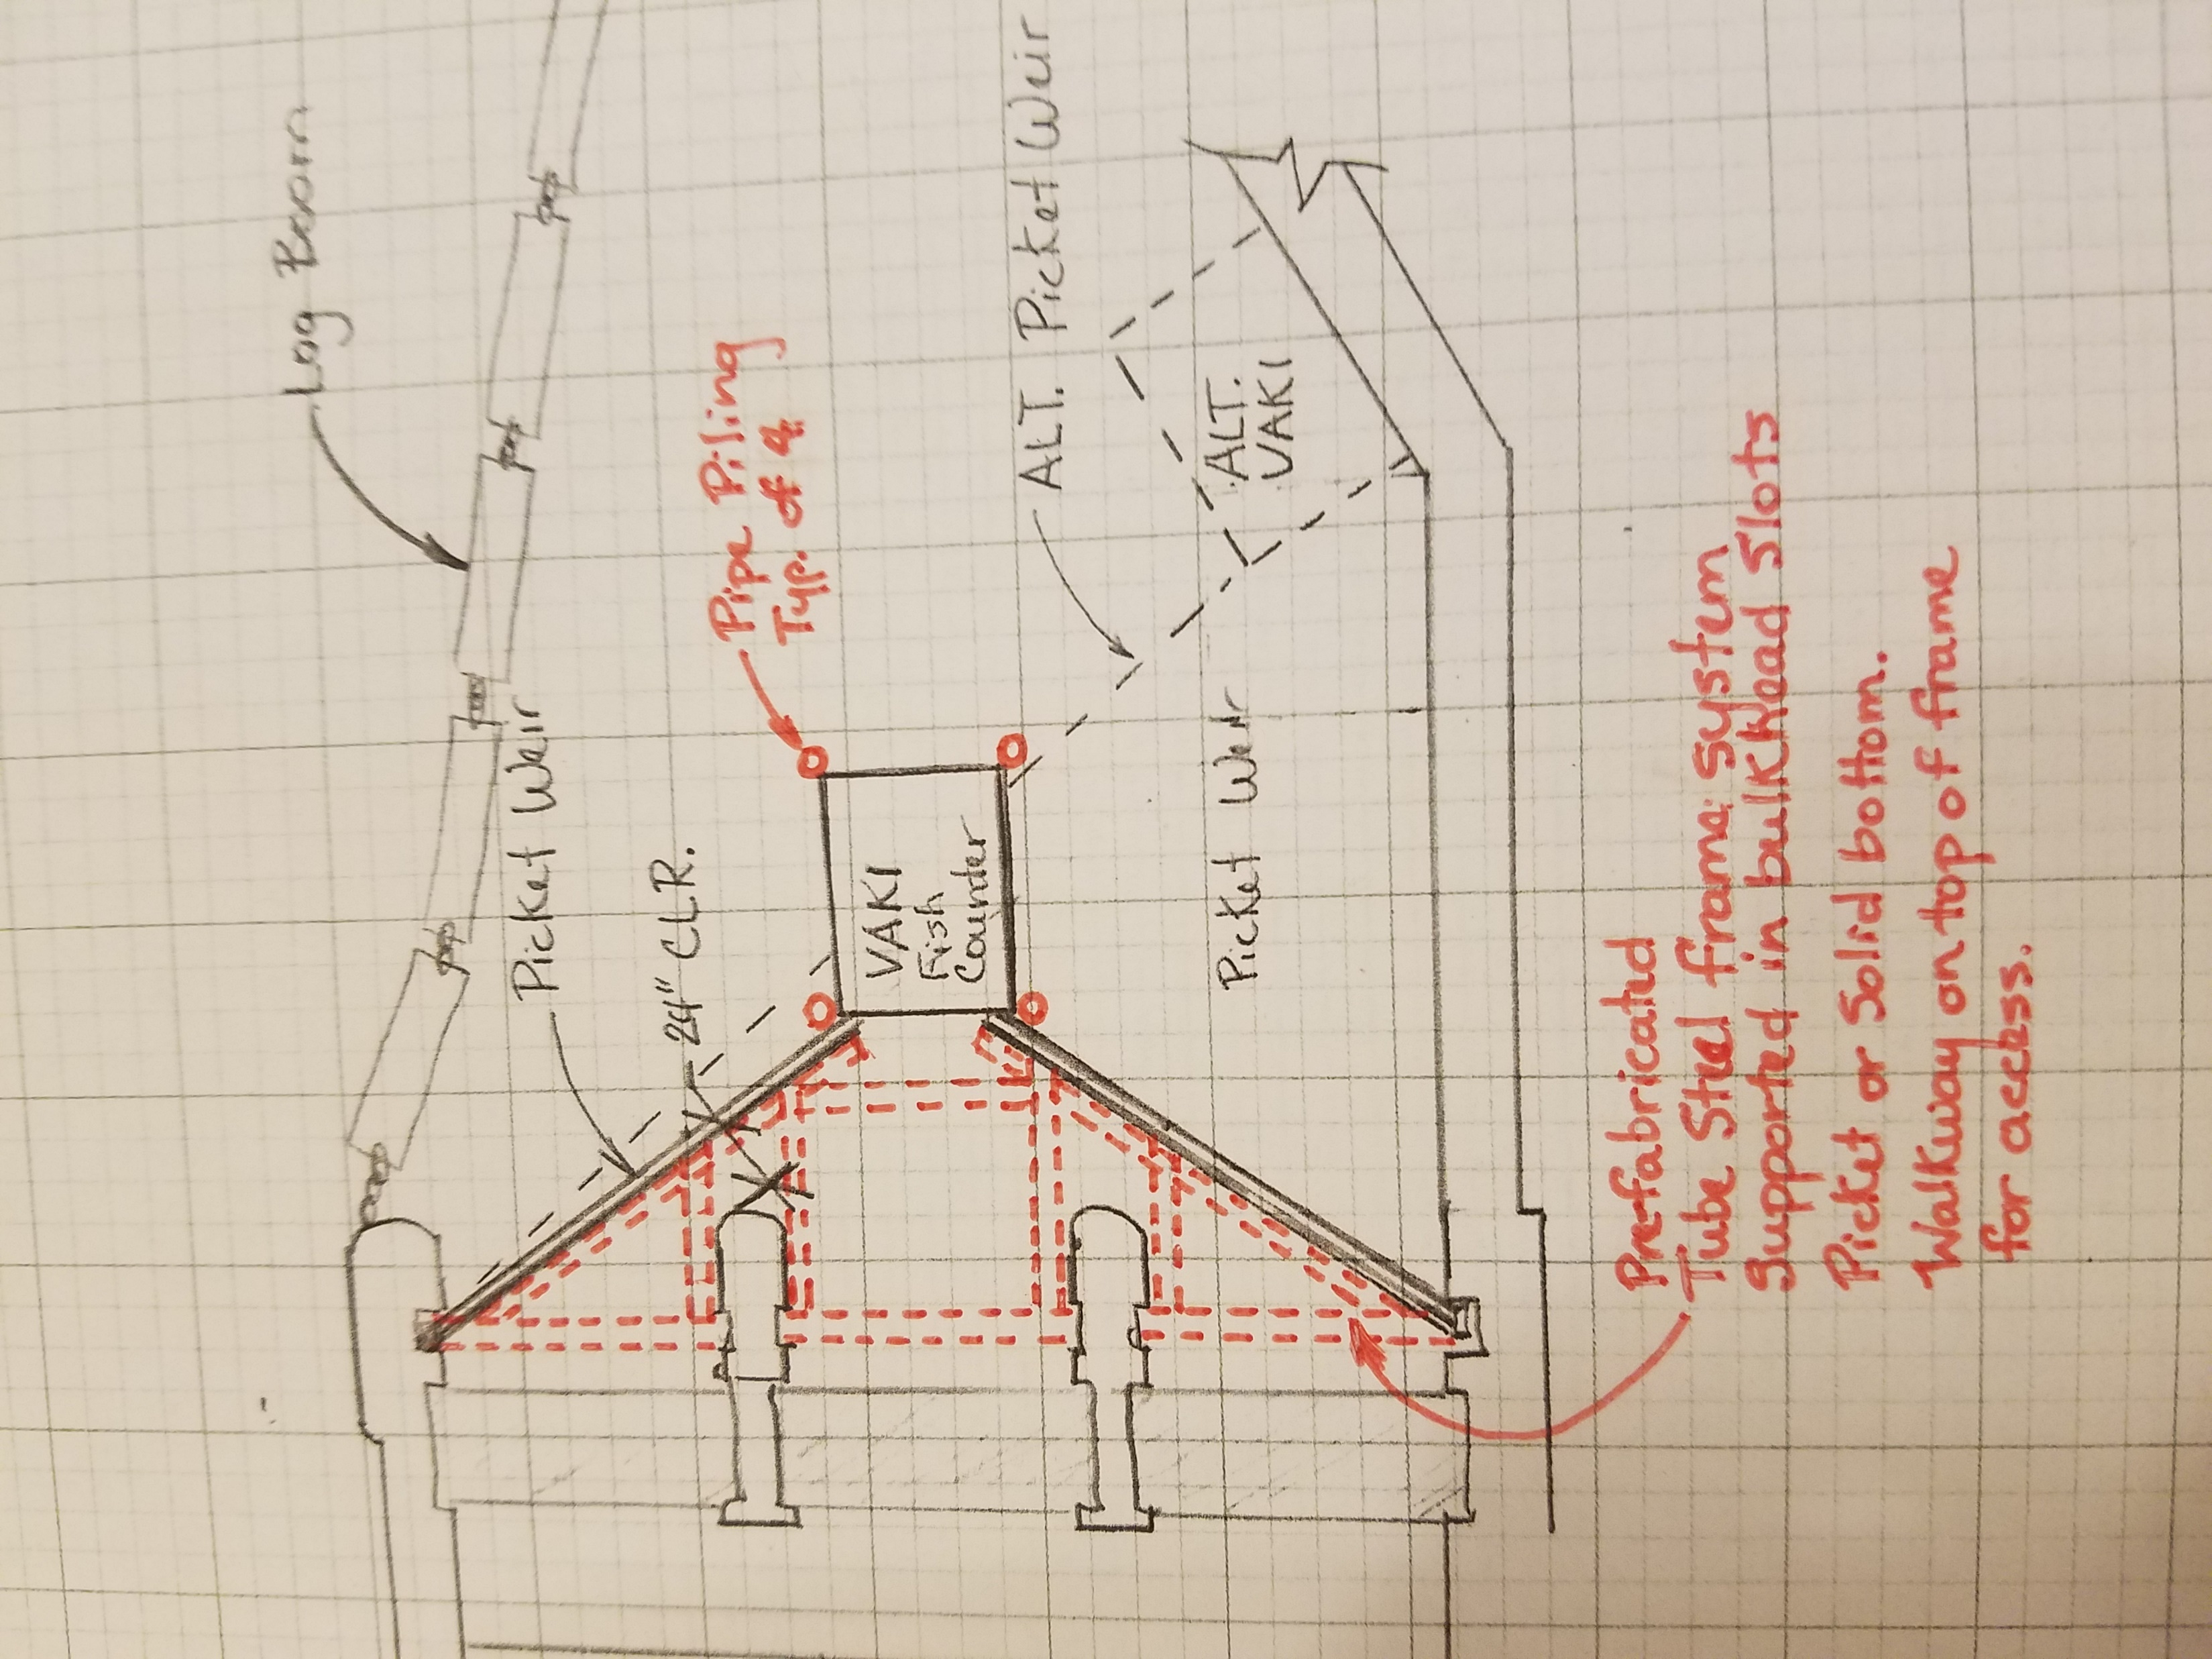 Log Boom
Picket Weir
24" CLR.
Pipe Piling
Typ. of 4
VAKI
Fish
Counter
ALT. Picket Weir
ALT.
VAKI
Picket Weir
Pre-fabricated
Tube Steel frame system
Supported in bulkhead Slots
Picket or Solid bottom.
Walkway on top of frame
for access.